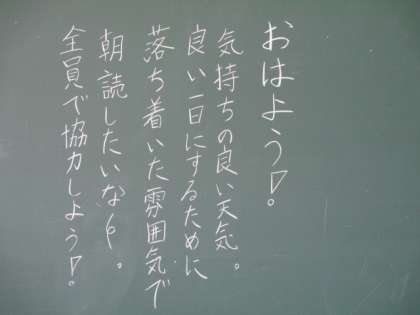 おはよう！。
気持ちの良い天気。
良い一日にするために
落ち着いた雰囲気で
朝読したいな〜。
全員で協力しよう！。